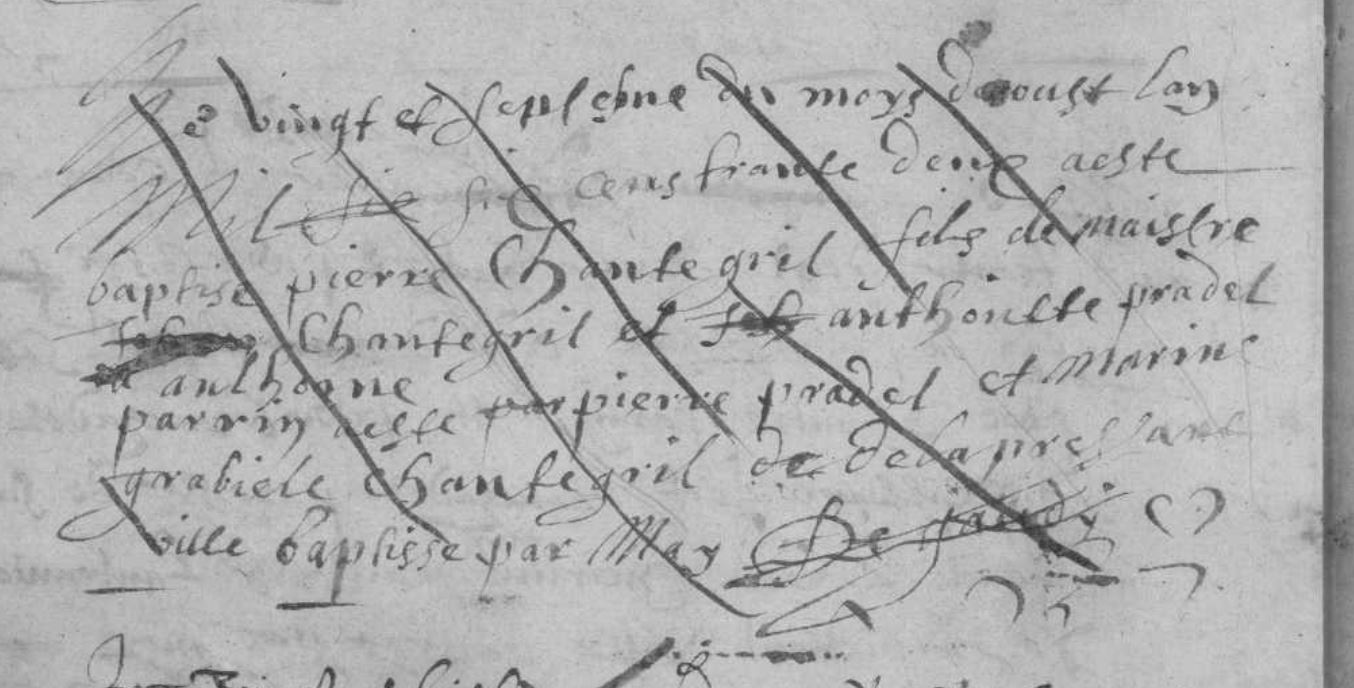 Le vingt et septiesme du moys daoust lan
Mil six six cens trante deux aeste
baptise pierre Chantegril fils de maistre
Chantegril et anthoinette pradel
anthoine
parrin aeste par pierre pradel et Marine
grabiele Chantegril de de la presSant
ville baptisse par May De jaudy